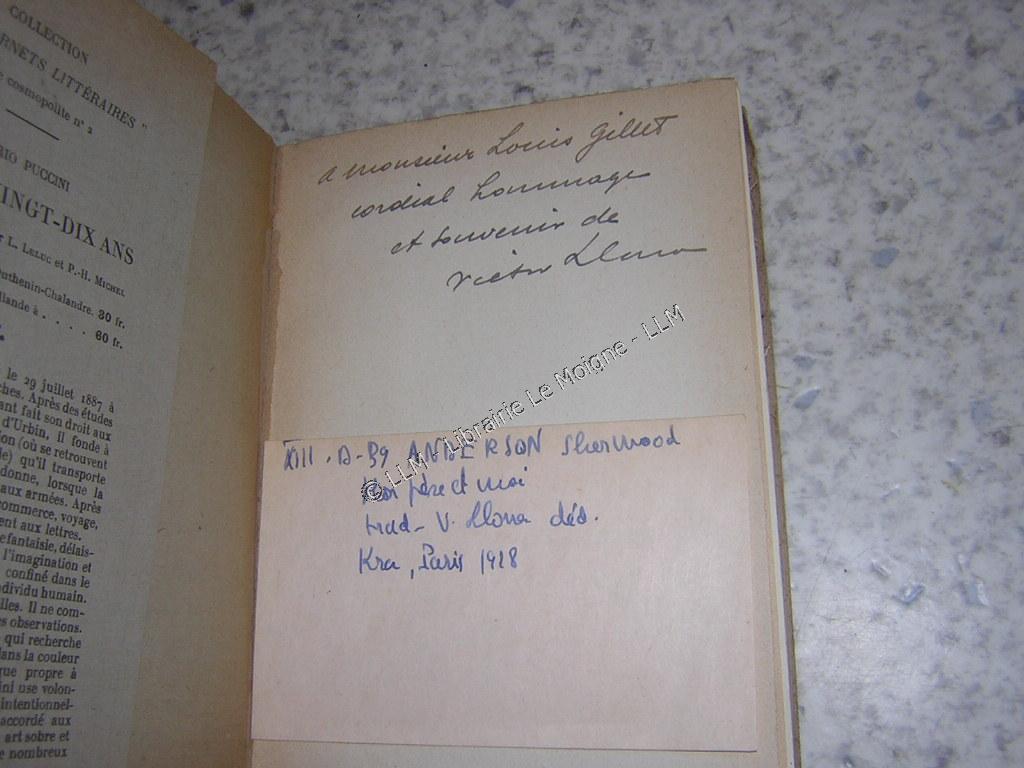 COLLECTION
RNETS LITTÉRAIRES "
e cosmopolite n° 2
RIO PUCCINI
INGT-DIX ANS
r L. LELUC et P.-H. MICHEL
uthenin-Chalandre. 30 fr.
llande à . . . . 60 fr.
le 29 juillet 1887 à
ches. Après des études
ant fait son droit aux
d'Urbin, il fonde à
ion (où se retrouvent
e) qu'il transporte
donne, lorsque la
aux armées. Après
commerce, voyage,
ent aux lettres.
e fantaisie, délais-
l'imagination et
confiné dans le
dividu humain.
lles. Il ne com-
s observations.
qui recherche
dans la couleur
que propre à
ini use volon-
intentionnel-
accordé aux
art sobre et
e nombreux
a monsieur Louis Gillet
cordial hommage
et souvenir de
Victor Llona
© LLM - Librairie Le Moigne - LLM
XIII. D-39 ANDERSON Sherwood
Mon père et moi
trad- V. Llona déd.
Kra, Paris 1928